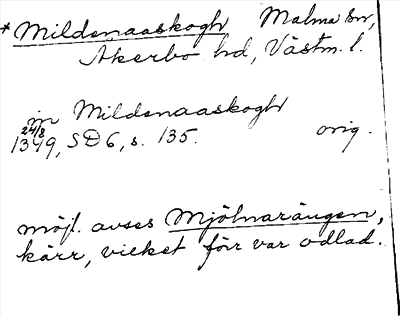 * Mildenaaskogh Malma sn,
Åkerbo hd, Västm. l.
in Mildenaaskogh
24/8
1349, SD 6, s. 135. orig.
möjl. avses Mjölnarängen,
kärr, vilket förr var odlad.